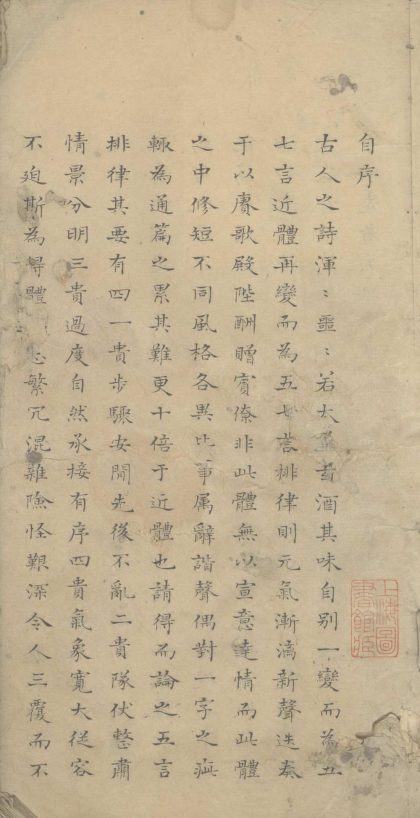 自序
古人之詩渾〻噩〻若大羹玄酒其味自別一變而為五
七言近體再變而為五七言排律則元氣漸漓新聲迭奏
于以賡歌殿陛酬贈賓僚非此體無以宣意達情而此體
之中修短不同風格各異比事属辭諧聲偶對一字之疵
輙為通篇之累其難更十倍于近體也請得而論之五言
排律其要有四一貴步驟安閒先後不亂二貴隊伏整肅
情景分明三貴過度自然承接有序四貴氣象寬大從容
不廹斯為得體 忌繁冗混雜險怪艱深令人三覆而不
上海圖書館藏